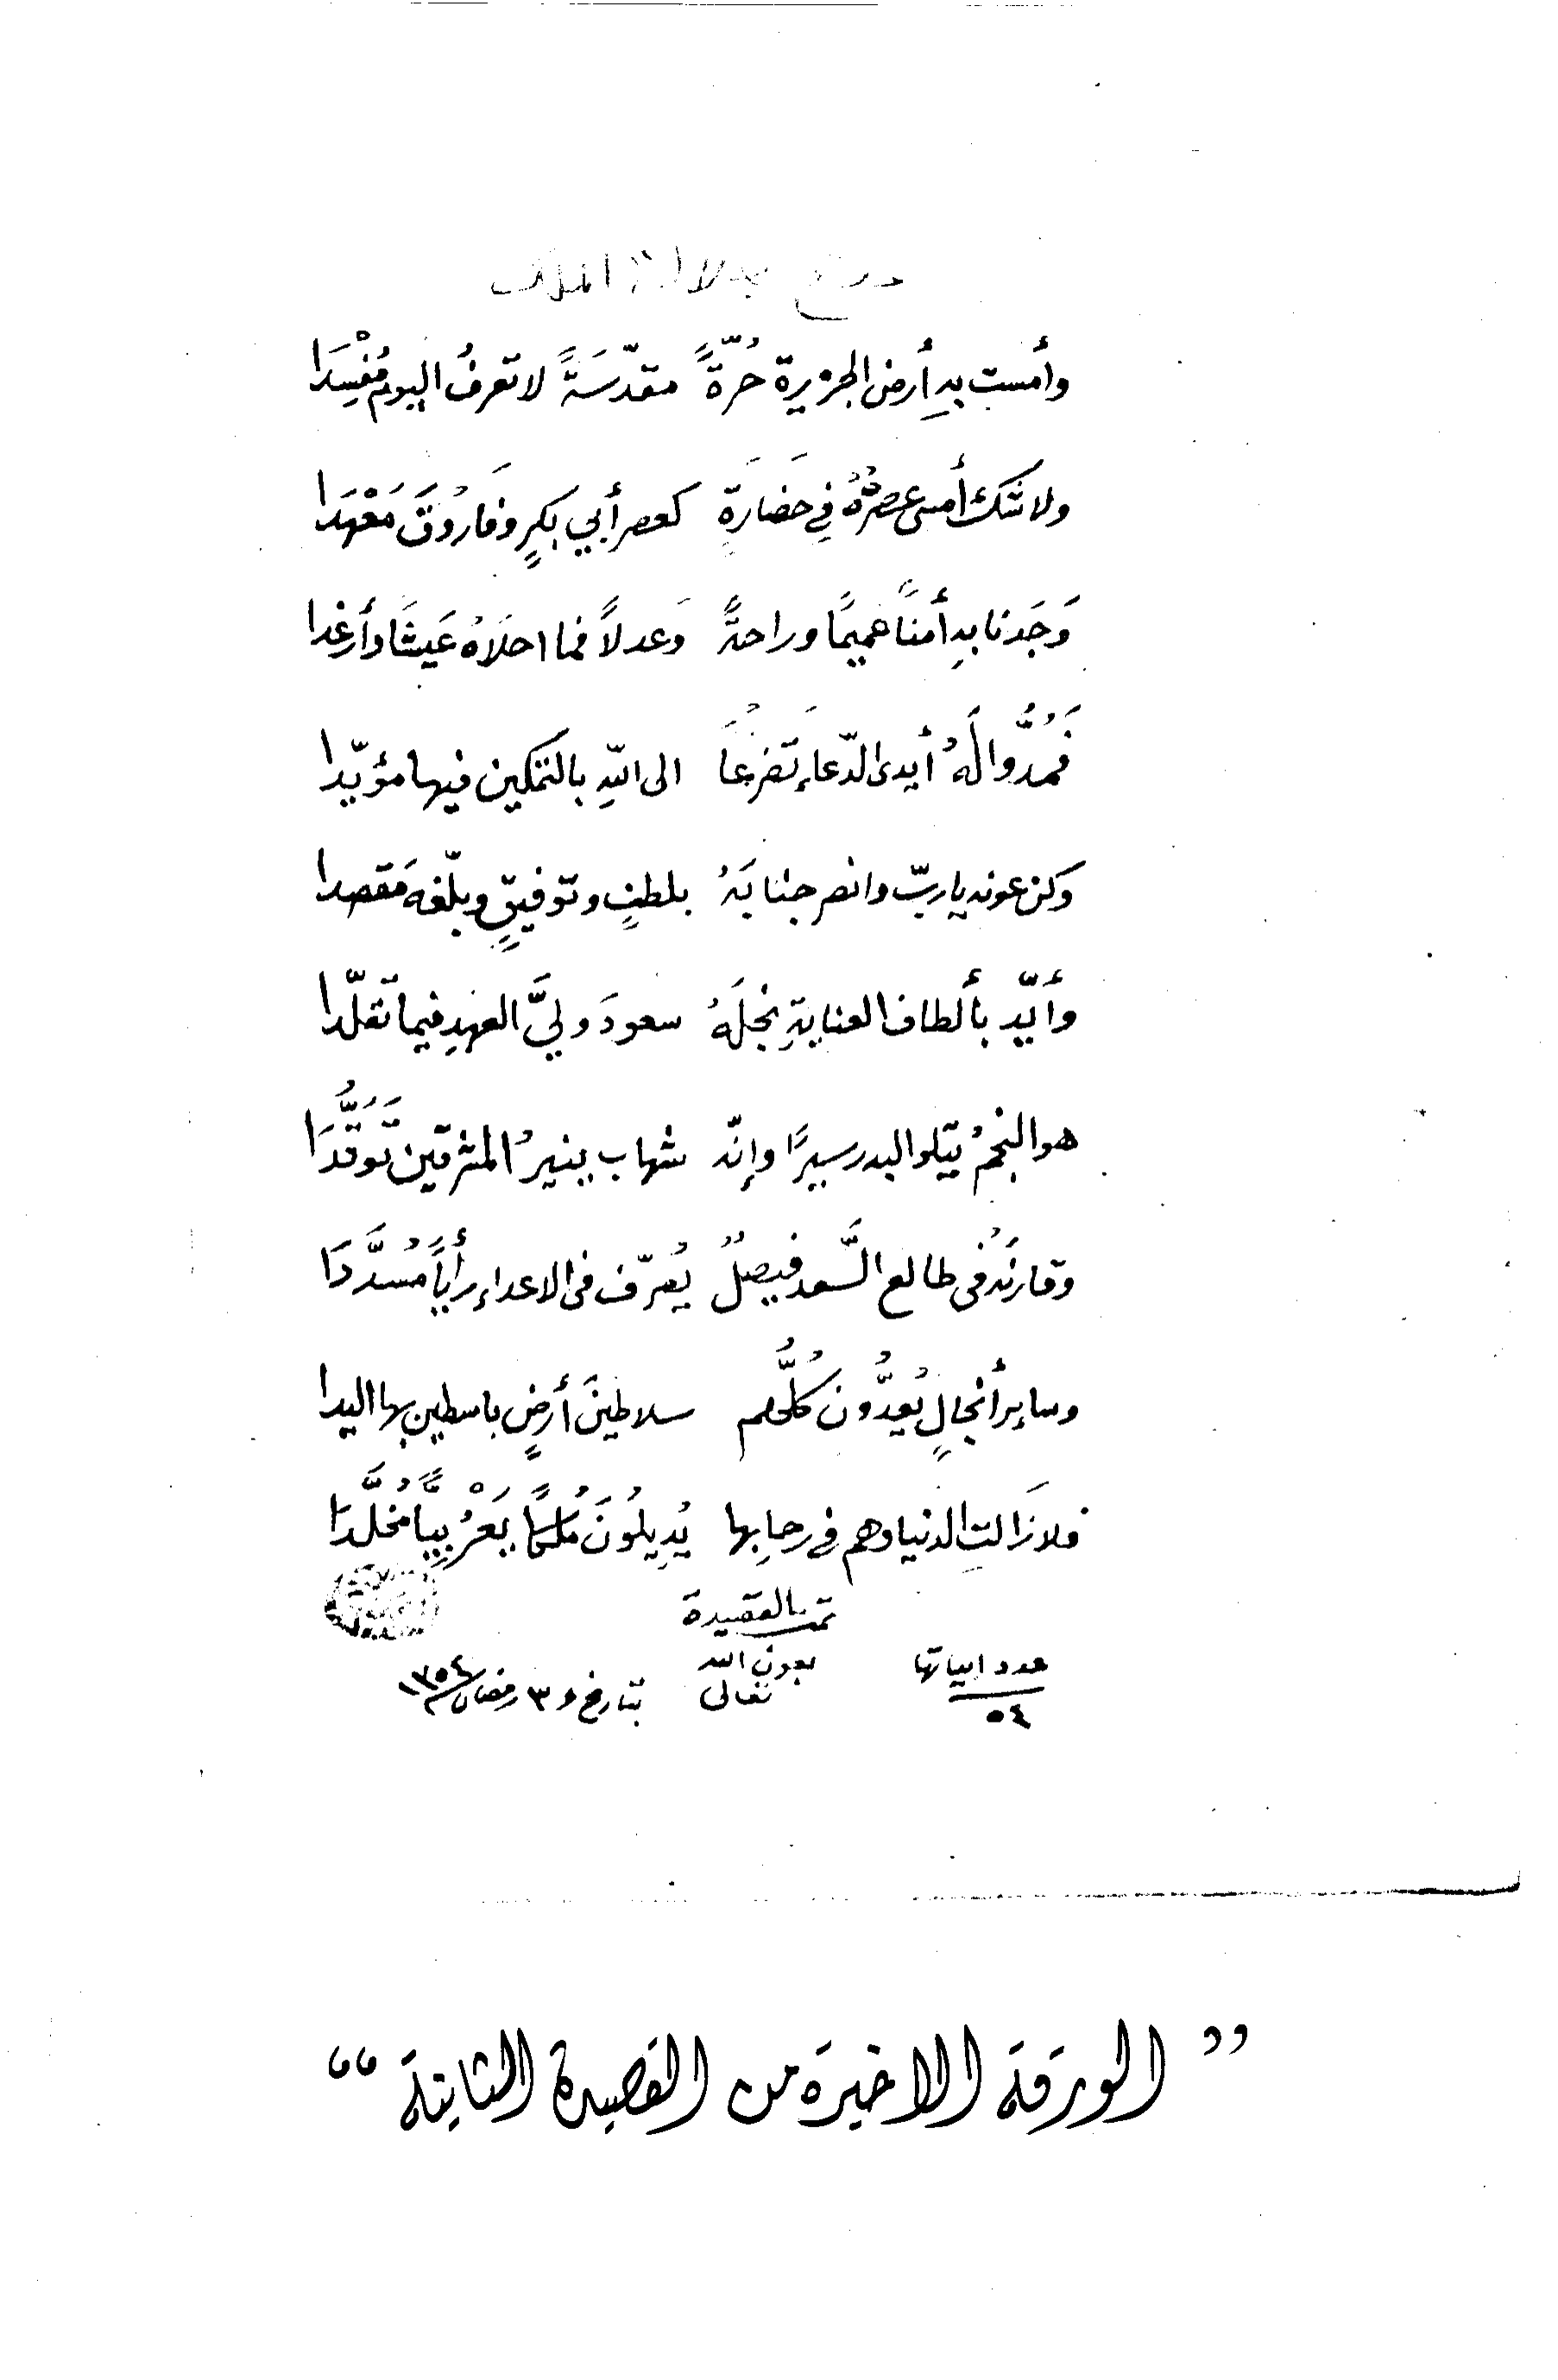 جلالة الملك
وأمست به أرض الجزيرة حُرّةً مقدّسَةً لا تعرفُ اليومَ مُفْسِدَا
ولا شك أمسى عصرُهُ في حَضَارَةٍ كعصر أبي بكرٍ وفاروُقَ مَعْهَدا
وَجَدنا بهِ أمنًا عميمًا وراحةً وَعدلاً فما احلاَهُ عَيشًا وأرغدا
فَمُدُّوا لَهُ أيدى الدّعاءِ تَضرعُاً الى اللهِ بالتمكين فيها مؤيّدا
وكن عونه ياربّ وانصر جنابَهُ بلطفٍ وتوفيقٍ وبلّغهَ مَقصدا
وأيّد بألطاف العنايةِ نجلَهُ سعودَ وليَّ العهدِ فيما تَقلّدا
هو النجمُ يتلو البدر سيرًا وإنّه شهاب ينيرُ المشرقين تَوَقُّدَا
وقارنَهُ فى طالع السَّعد فيصلٌ يُعرّف فى الاعداءِ رأيًا مُسَدَّدَا
وسايرُ أنجالٍ يُعدُّون كُلُّهم سلاطينَ أرضٍ باسطين بها اليدا
فلا زَالتِ الدنيا وهم في رحابِها يُدِيلُونَ مُلكًا يَعْرُبِيًّا مُخَلَّدَا
تمت القصيدة
عدد ابياتها بعون الله
تعالى بتاريخ ٣ رمضان ١٣٥٤
٥٤
” الورقة الاخيرة من القصيدة الثانية “